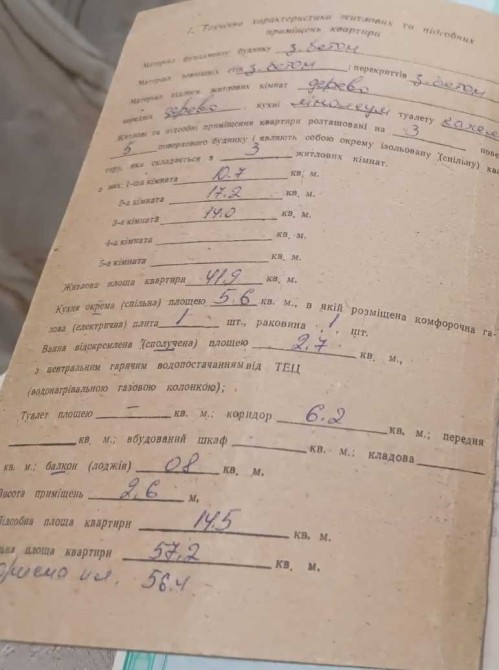 І. Технічна характеристика житлових та підсобних
приміщень квартири
Матеріал фундаменту будинку з. бетон
Матеріал зовнішніх стін з. бетон ; перекриттів з. бетон
Матеріал підлог житлових кімнат дерево
коридор дерево , кухні лінолеум туалету
Житлові та підсобні приміщення квартири розташовані на 3 пове
5 поверхового будинку і являють собою окрему ізольовану (спільну) ква
тиру, яка складається з 3 житлових кімнат.
з них: 1-ша кімната 10.7 кв. м.
2-а кімната 17.2 кв. м.
3-а кімната 14.0 кв. м.
4-а кімната кв. м.
5-а кімната кв. м.
Житлова площа квартири 41.9 кв. м.
Кухня окрема (спільна) площею 5.6 кв. м., в якій розміщена комфорочна га-
зова (електрична) плита 1 шт., раковина 1 шт.
Ванна відокремлена (сполучена) площею 2.7 кв. м.,
з центральним гарячим водопостачанням від ТЕЦ
(водонагрівальною газовою колонкою);
Туалет площею — кв. м.; коридор 6.2 кв. м.; передня
кв. м.; вбудований шкаф - кв. м.; кладова
кв. м.; балкон (лоджія) 08 кв. м.
Висота приміщень 2,6 м.
Підсобна площа квартири 14.5 кв. м.
площа квартири 57.2 кв. м.
пл. 56.4